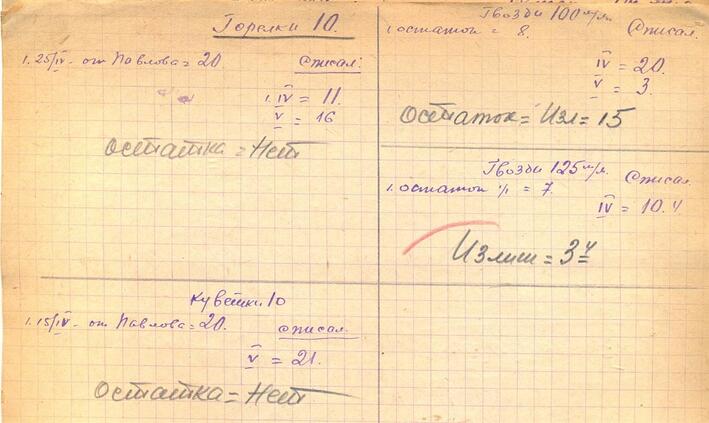 Горелки 10.
1. 25/IV - от Павлова = 20. Списал:
1. IV = 11.
V = 16
Остатка = Нет
Кувешки 10
1. 15/IV - от Павлова = 20. Списал:
V = 21.
Остатка = Нет
Гвозди 100 м/м.
1. остаток = 8. Списал.
IV = 20.
V = 3.
Остаток = Изл = 15
Гвозди 125 м/м. Списал
1. остаток = 7.
IV = 10.4
Излиш = 3